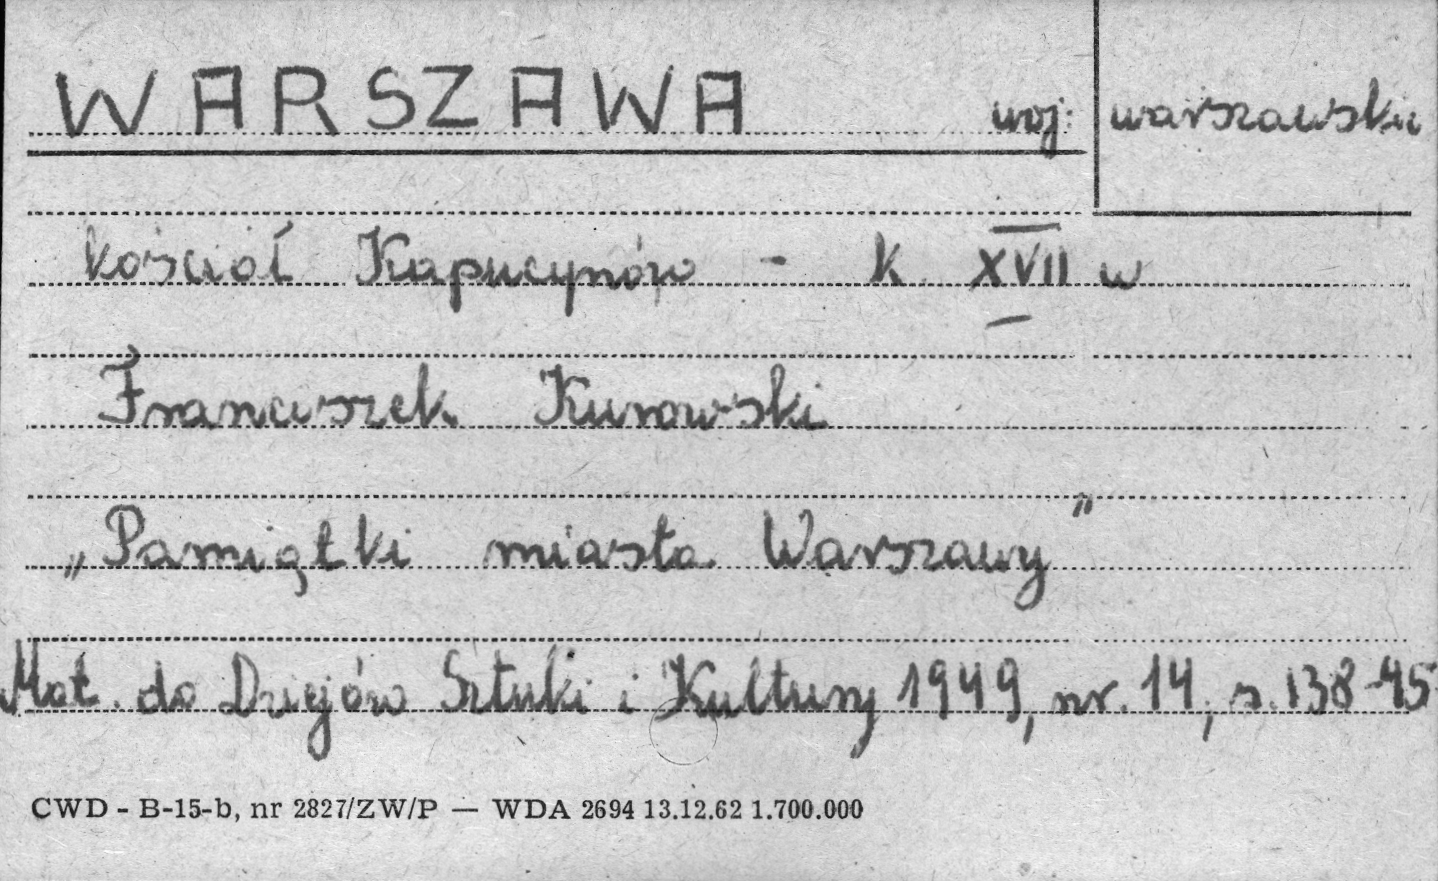 WARSZAWA woj: warszawskie
kościół Kapucynów - k. XVII w
Franciszek Kurowski
„Pamiątki miasta Warszawy”
Mat. do Dziejów Sztuki i Kultury 1949, nr. 14, s. 138-45
CWD - B-15-b, nr 2827/ZW/P — WDA 2694 13.12.62 1.700.000